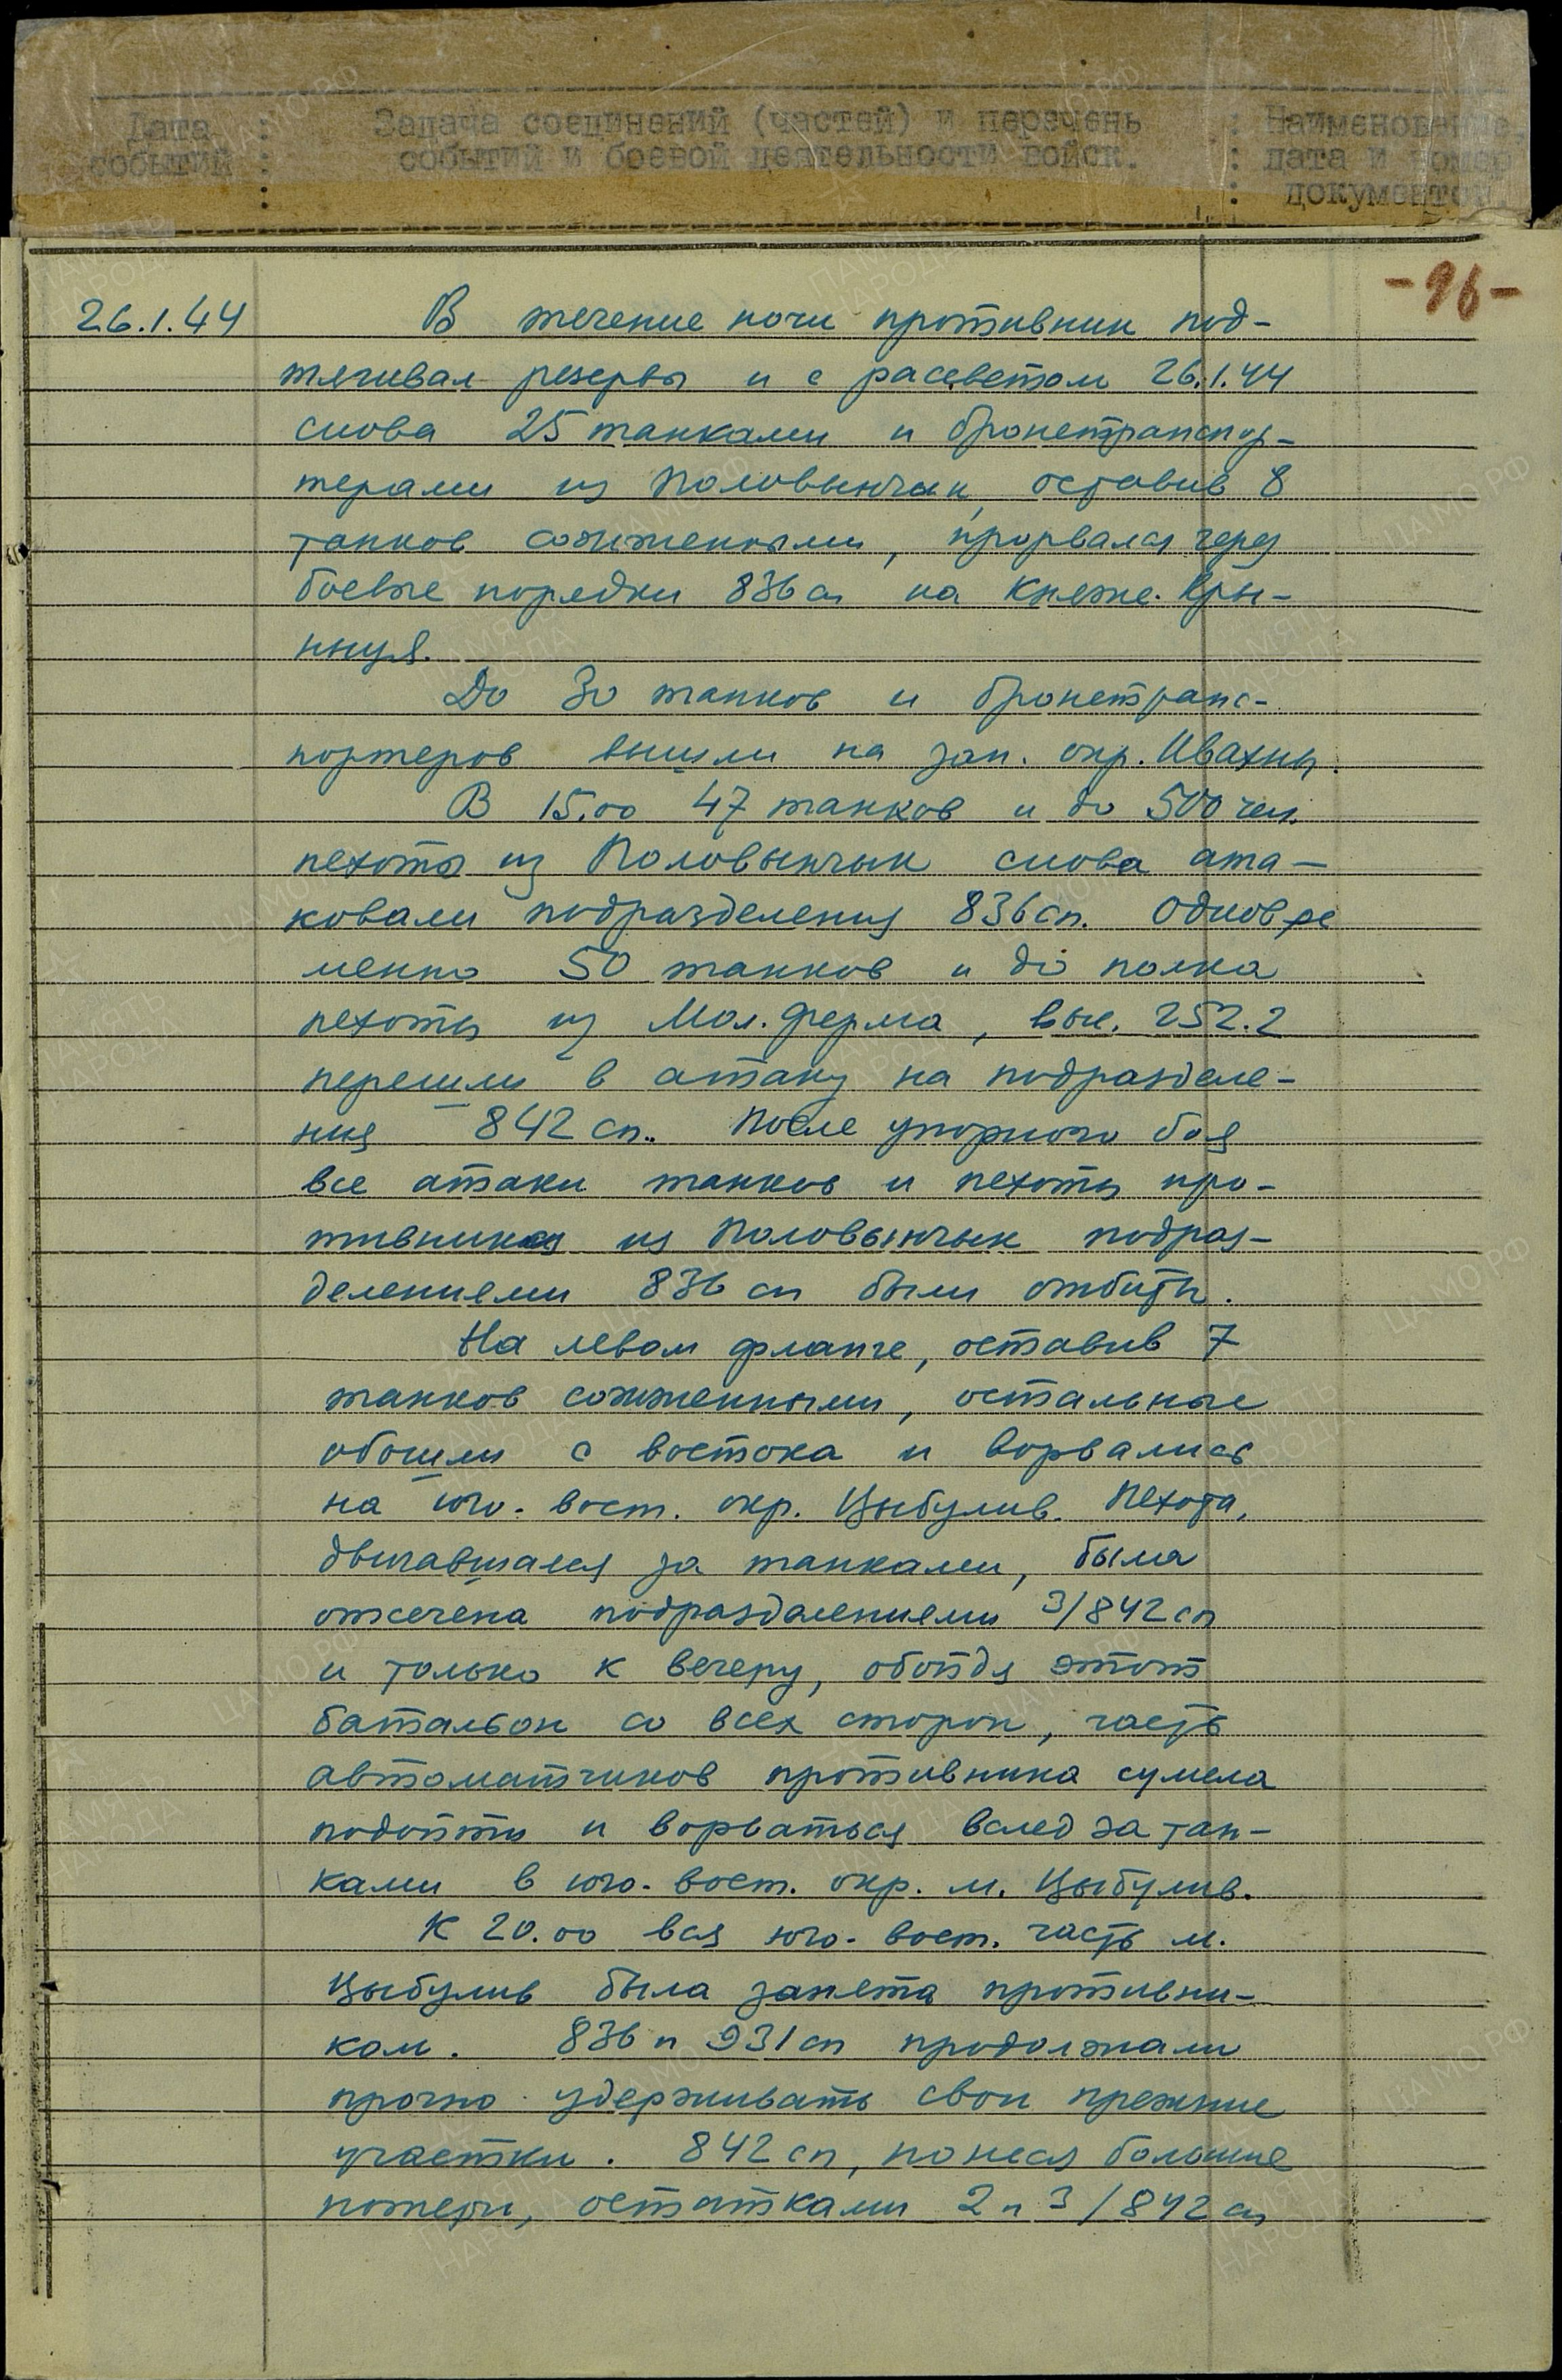 Дата : Задача соединений (частей) и перечень : Наименование,
событий : событий и боевой деятельности войск. : дата и номер
: : документов.
-96-
26.1.44 В течение ночи противник под-
тягивал резервы и с рассветом 26.1.44
снова 25 танками и бронетранспор-
терами из Половынчик, оставив 8
танков сожженными, прорвался через
боевые порядки 836 сп на Княже. Кры-
ныця.
До 30 танков и бронетранс-
портеров вышли на зап. окр. Ивахны.
В 15.00 47 танков и до 500 чел.
пехоты из Половынчык снова ата-
ковали подразделения 836 сп. Одновре
менно 50 танков и до полка
пехоты из Мол. ферма, выс. 252.2
перешли в атаку на подразделе-
ния 842 сп. После упорного боя
все атаки танков и пехоты про-
тивника из Половынчык подраз-
делениями 836 сп были отбиты.
На левом фланге, оставив 7
танков сожженными, остальные
обошли с востока и ворвались
на юго-вост. окр. Цыбулив. Пехота,
двигавшаяся за танками, была
отсечена подразделениями 3/842 сп
и только к вечеру, обойдя этот
батальон со всех сторон, часть
автоматчиков противника сумела
подойти и ворваться вслед за тан-
ками в юго-вост. окр. м. Цыбулив.
К 20.00 вся юго-вост. часть м.
Цыбулив была занята противни-
ком. 836 и 931 сп продолжали
прочно удерживать свои прежние
участки. 842 сп, понеся большие
потери, остатками 2 и 3/842 сп